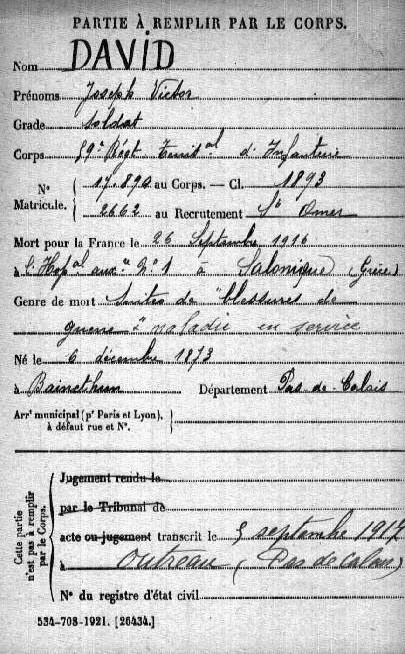 PARTIE À REMPLIR PAR LE CORPS.
Nom DAVID
Prénoms Joseph Victor
Grade soldat
Corps 59e Régt Territal d'Infanterie
No Matricule. 17.890 au Corps. — Cl. 1893
2662 au Recrutement St Omer
Mort pour la France le 26 Septembre 1916
à l'Hopal aux. re No 1 à Salonique (Grèce)
Genre de mort Suites de "blessures de
guerre" maladie en service
Né le 6 décembre 1873
à Baincthun Département Pas-de-Calais
Arrt municipal (pr Paris et Lyon),
à défaut rue et No.
Cette partie n'est pas à remplir par le Corps.
Jugement rendu le
par le Tribunal de
acte ou jugement transcrit le 5 septembre 1917
à Outreau (Pas de Calais)
No du registre d'état civil
534-708-1921. [26434.]